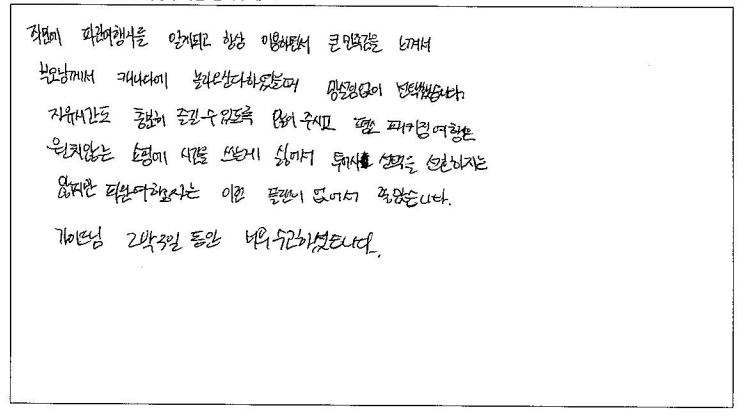 작년에 파란여행사를 알게되고 항상 이용하면서 큰 만족감을 느껴서
부모님께서 캐나다에 놀러오신다하였을때 망설임없이 선택했습니다.
자유시간도 충분히 즐길 수 있도록 많이 주시고 평소 패키지 여행은
원치않는 쇼핑에 시간을 쓰는게 싫어서 투어사 선택을 선호하지는
않지만 파란여행사는 이런 플랜이 없어서 좋았습니다.
가이드님 2박3일 동안 너무 수고하셨습니다.